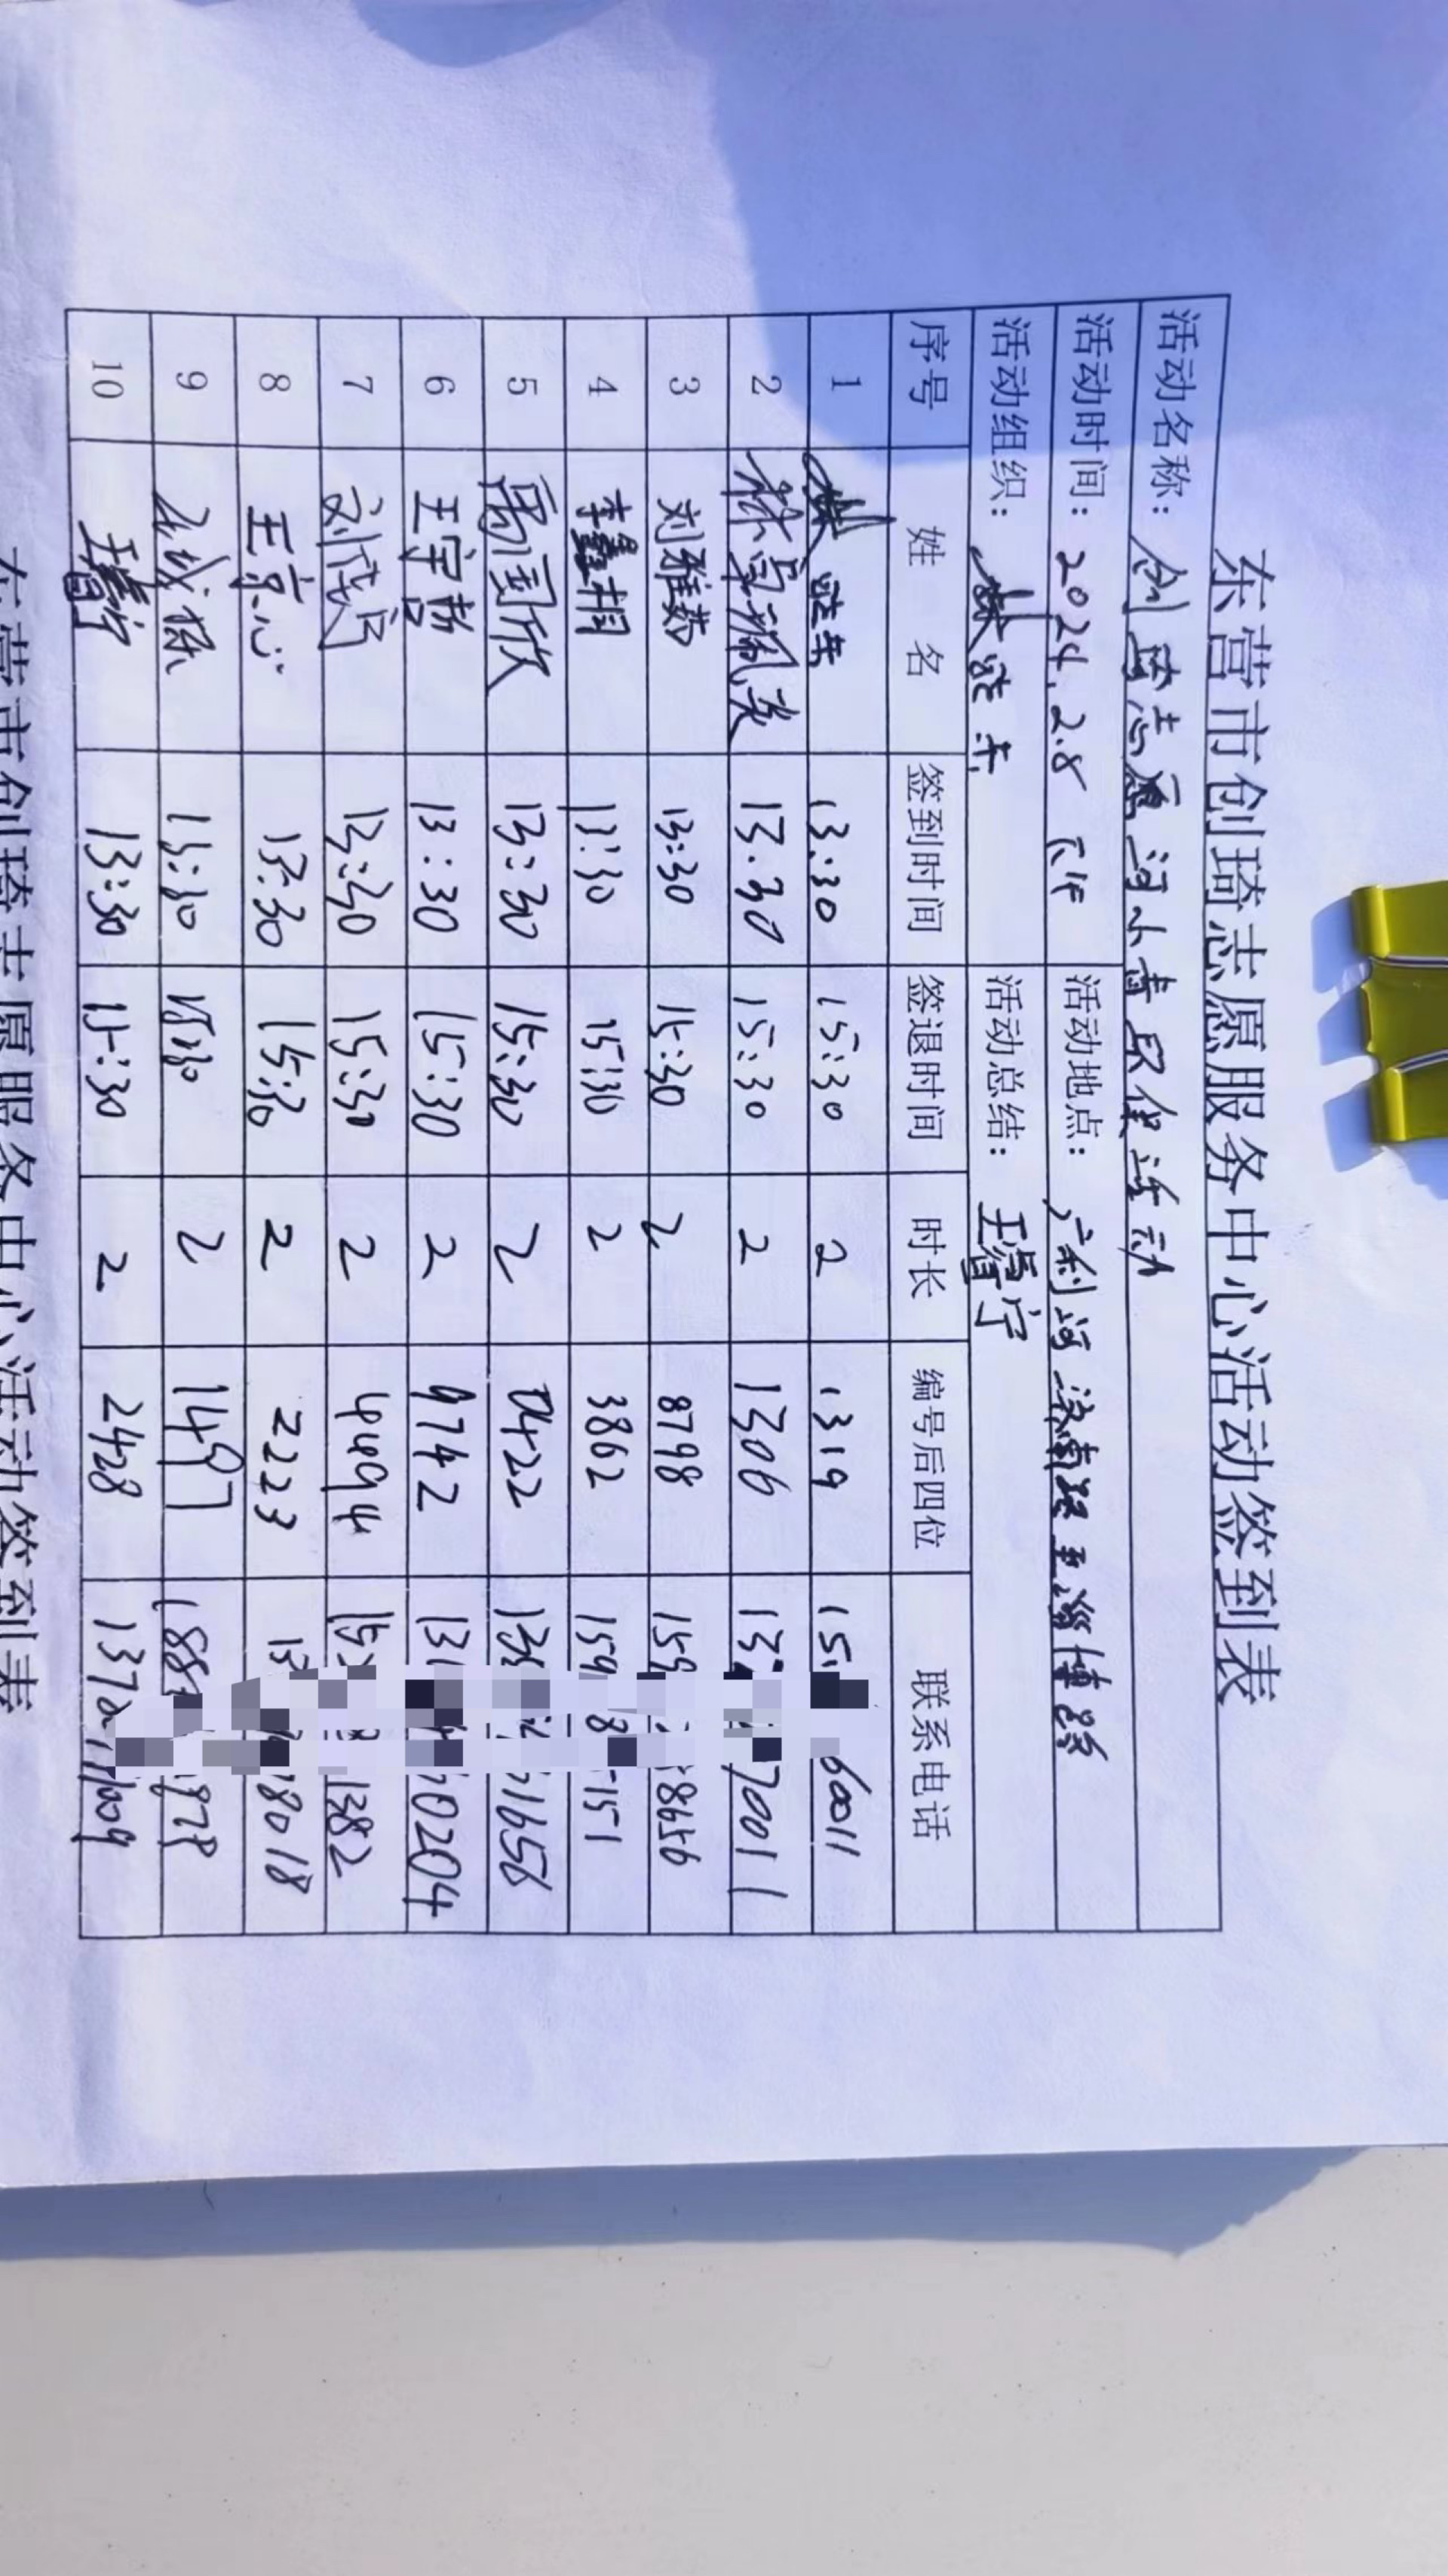 东营市创琦志愿服务中心活动签到表
活动名称: 创琦志愿河小青取水活动
活动时间: 2024.2.8 下午 活动地点: 广利河
活动组织: 活动总结: 王睿宁
序号 姓 名 签到时间 签退时间 时长 编号后四位 联系电话
1 13:30 15:30 2 1319 15 6011
2 13:30 15:30 2 1306 13 7001
3 刘雅茹 13:30 15:30 2 8798 159 8656
4 李鑫桐 13:30 15:30 2 3862 159 8 151
5 13:30 15:30 2 0422 13 1656
6 王宇喆 13:30 15:30 2 9742 13 0204
7 刘 13:30 15:30 2 4494 15 1382
8 王京心 13:30 15:30 2 2223 15 8018
9 13:30 15:30 2 1497 188
10 王睿宁 13:30 15:30 2 2428 137 1009
东营市创琦志愿服务中心活动签到表